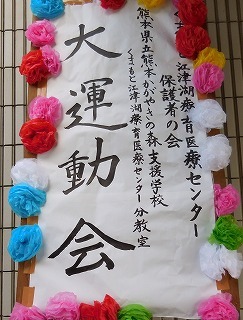 江津湖療育医療センター
保護者の会
熊本県立熊本かがやきの森支援学校
くまもと江津湖療育医療センター分教室
大運動会